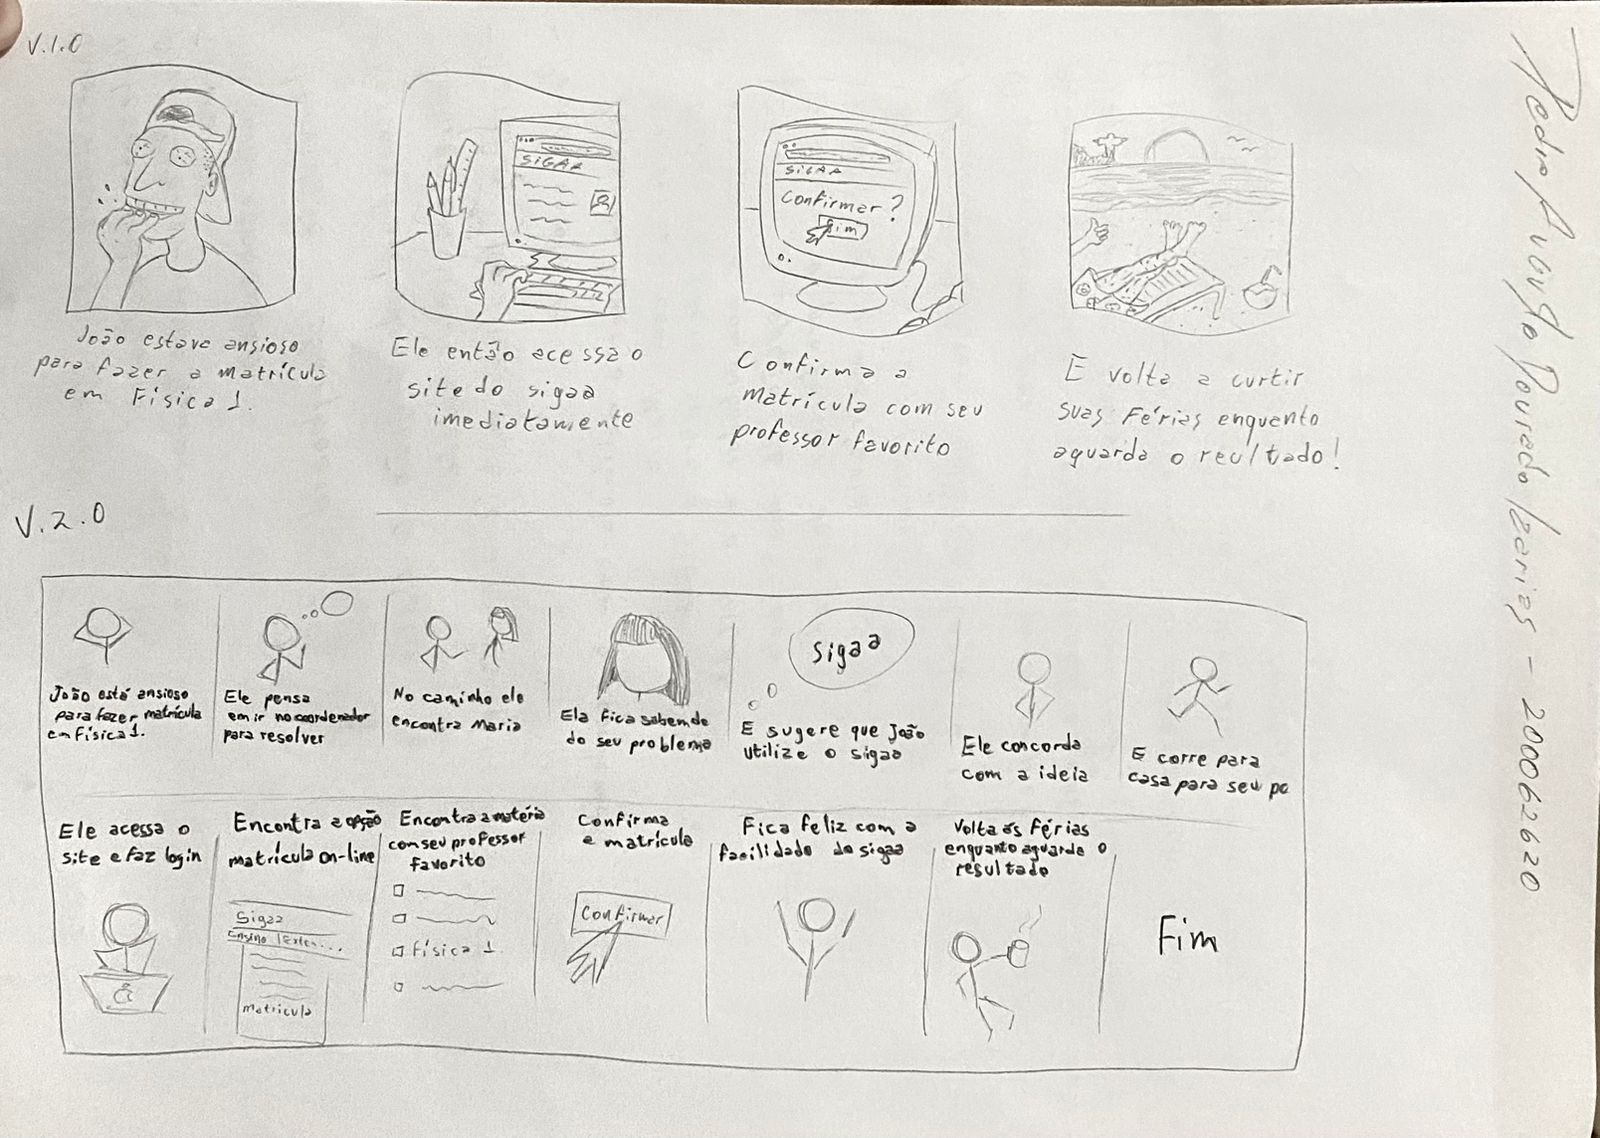 V.1.0
SIGAA
SIGAA
Confirmar?
Sim
João estava ansioso
para fazer a matrícula
em Física 1.
Ele então acessa o
site do sigaa
imediatamente
Confirma a
matrícula com seu
professor favorito
E volta a curtir
suas Férias enquanto
aguarda o reultado!
V.2.0
João está ansioso
para fazer matrícula
em física 1.
Ele pensa
em ir no coordenador
para resolver
No caminho ele
encontra Maria
Ela fica sabendo
do seu problema
Sigaa
E sugere que João
utilize o sigaa
Ele concorda
com a ideia
E corre para
casa para seu pc
Ele acessa o
site e faz login
Encontra a opção
matrícula on-line
Sigaa
Ensino |Exten...
matrícula
Encontra a matéria
com seu professor
favorito
física 1
Confirma
a matrícula
Confirmar
Fica feliz com a
facilidade do sigaa
Volta ás férias
enquanto aguarda o
resultado
Fim
Pedro Augusto Dourado Izarias - 200062620